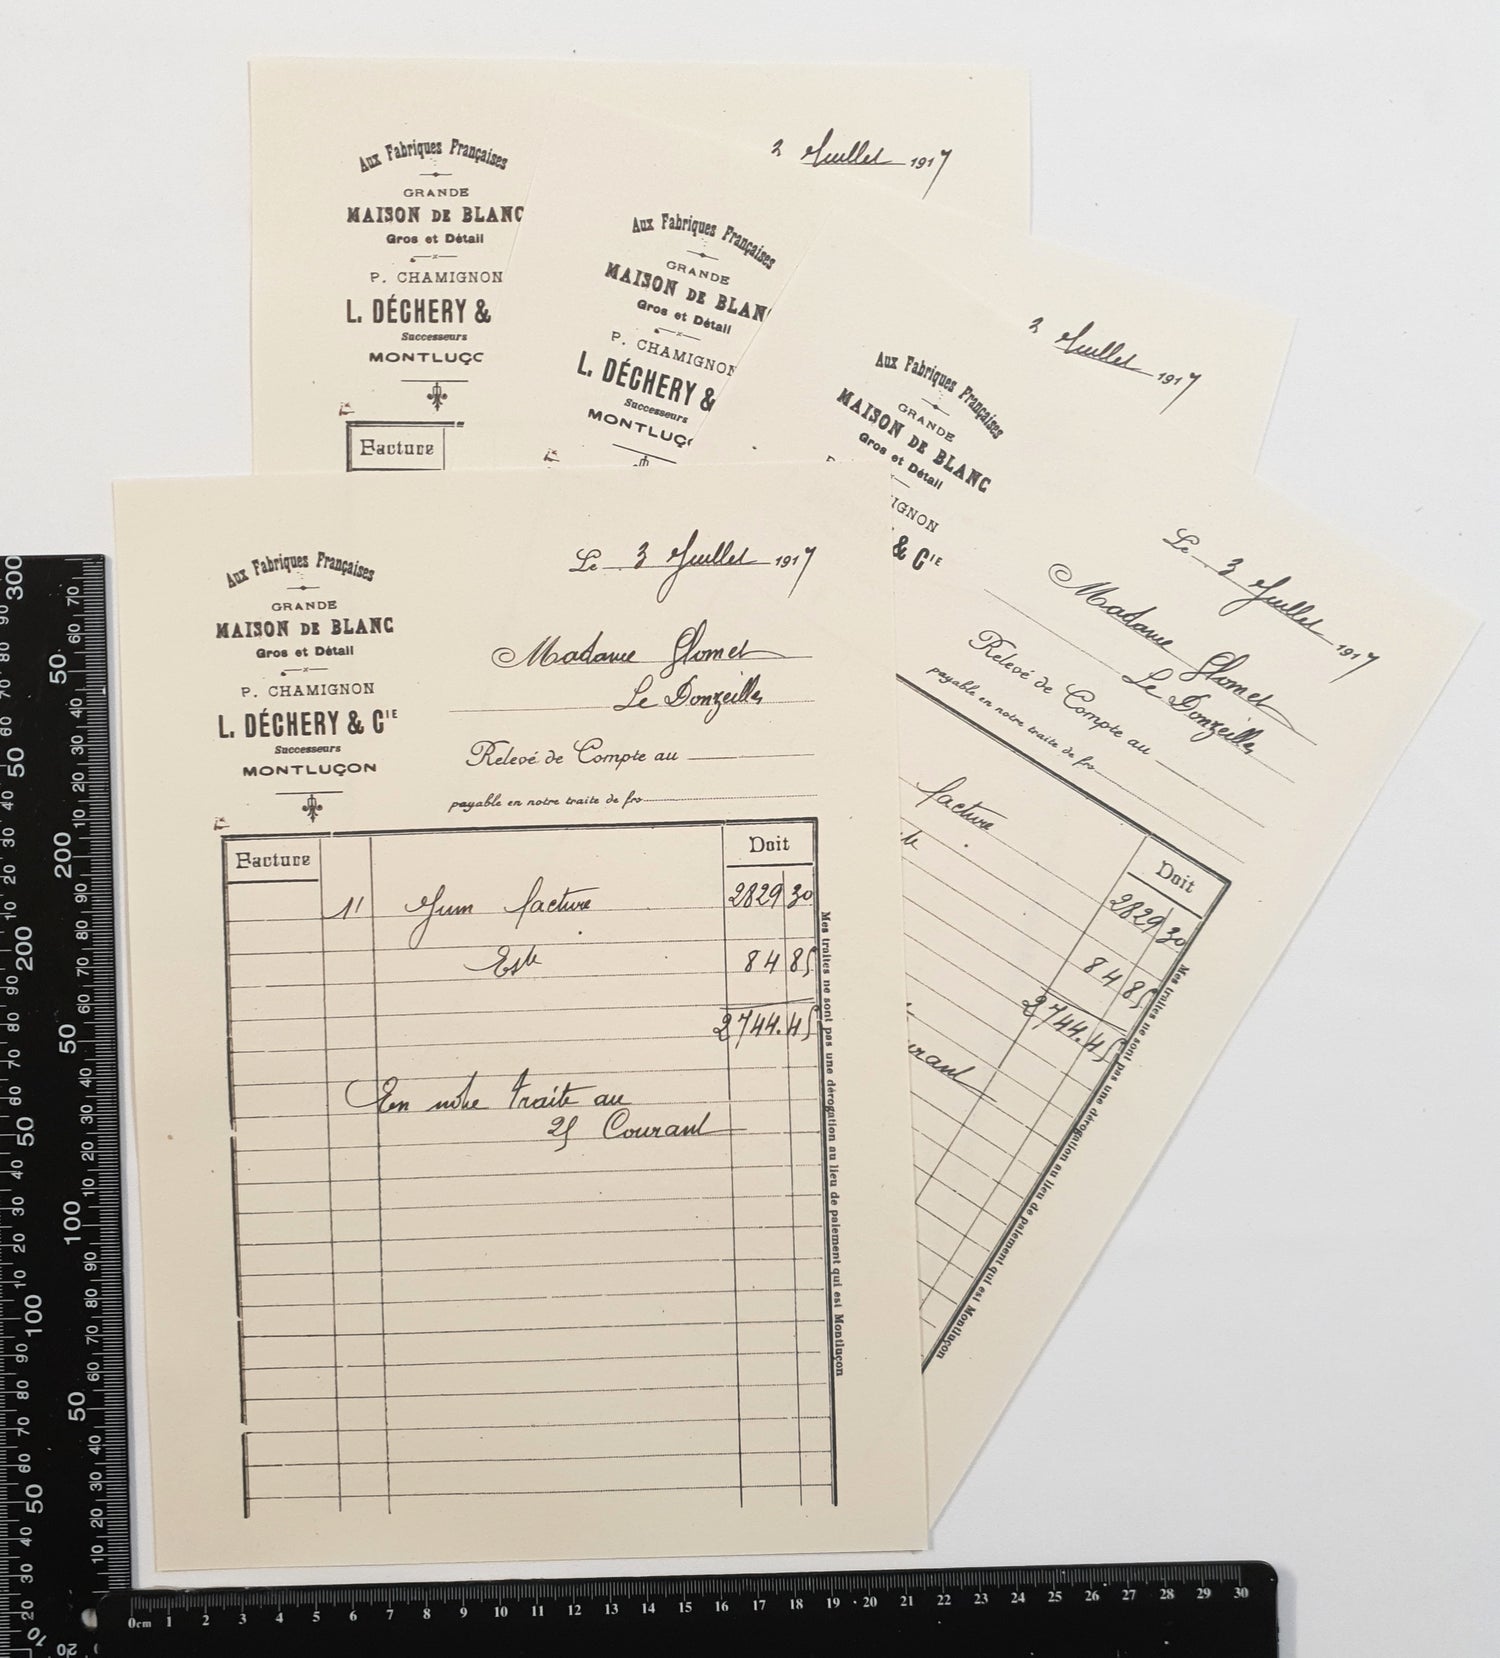 Aux Fabriques Françaises
GRANDE
MAISON DE BLANC
Gros et Détail
P. CHAMIGNON
L. DÉCHERY &
Successeurs
MONTLUÇO
Facture
3 Juillet 1917
Aux Fabriques Françaises
GRANDE
MAISON DE BLAN
Gros et Détail
P. CHAMIGNON
L. DÉCHERY &
Successeurs
MONTLUÇ
3 Juillet 1917
Aux Fabriques Françaises
GRANDE
MAISON DE BLANC
Gros et Détail
IGNON
& CIE
Le 3 Juillet 1917
Madame Glomet
Le Donzeille
Relevé de Compte au
payable en notre traite de frs
Doit
facture
2829 30
84 85
2744.45
Courant
Mes traites ne sont pas une dérogation au lieu de paiement qui est Montluçon
Aux Fabriques Françaises
GRANDE
MAISON DE BLANC
Gros et Détail
P. CHAMIGNON
L. DÉCHERY & CIE
Successeurs
MONTLUÇON
Le 3 Juillet 1917
Madame Glomet
Le Donzeille
Relevé de Compte au
payable en notre traite de frs
Facture
Doit
11 facture 2829 30
Este 84 85
2744.45
En notre traite au
25 Courant
Mes traites ne sont pas une dérogation au lieu de paiement qui est Montluçon
0cm 1 2 3 4 5 6 7 8 9 10 11 12 13 14 15 16 17 18 19 20 21 22 23 24 25 26 27 28 29 30